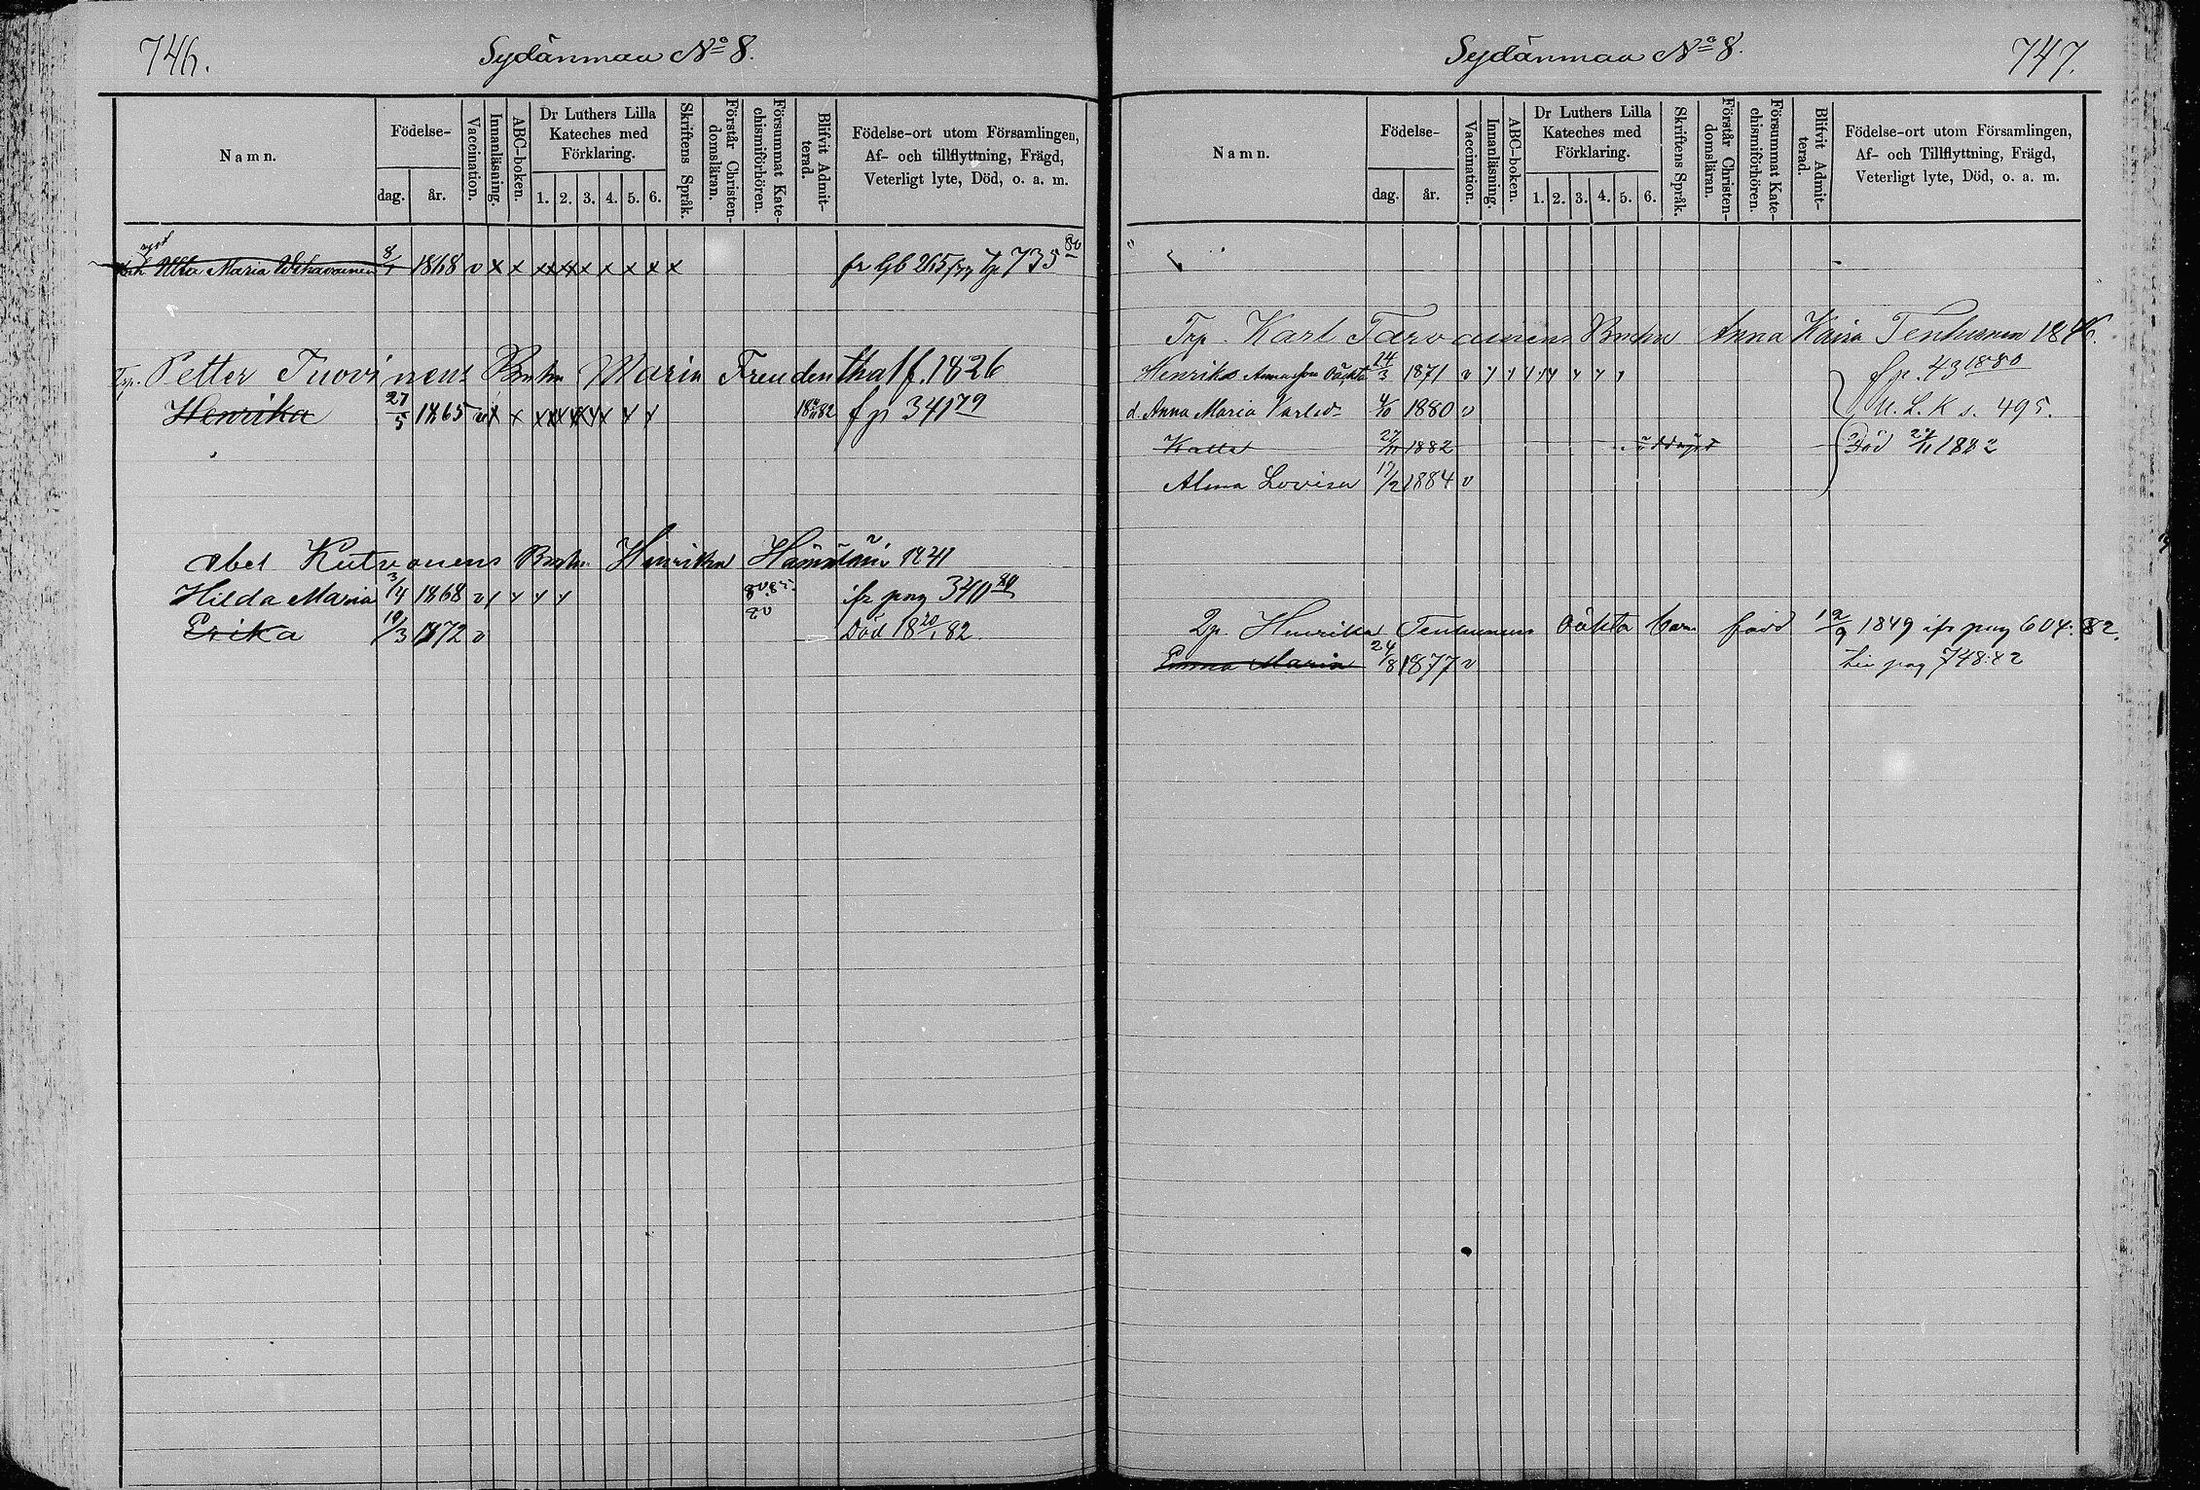 746.
Sydänmaa No 8.
Namn.
Födelse-
dag.
år.
Vaccination.
Innanläsning.
ABC-boken.
Dr Luthers Lilla
Kateches med
Förklaring.
1. 2. 3. 4. 5. 6.
Skriftens Språk.
Förstår Christen-
domsläran.
Försummat Kate-
chismiförhören.
Blifvit Admit-
terad.
Födelse-ort utom Församlingen,
Af- och tillflyttning, Frägd,
Veterligt lyte, Död, o. a. m.
Maria 8/1 1868 v x x x x x x x x x x fr 265/77 735 80
Petter Tuovinens Barn Maria Freudenthal f. 1826
Henrika 27/5 1865 v x x x x x x x x x fr 341 79
Abel Kutvonens Barn Henrika 1841
Hilda Maria 3/4 1868 v ifr pag 340 80
Erika 10/3 1872 v Död 18 20/1 82
747.
Sydänmaa No 8.
Namn.
Födelse-
dag.
år.
Vaccination.
Innanläsning.
ABC-boken.
Dr Luthers Lilla
Kateches med
Förklaring.
1. 2. 3. 4. 5. 6.
Skriftens Språk.
Förstår Christen-
domsläran.
Försummat Kate-
chismiförhören.
Blifvit Admit-
terad.
Födelse-ort utom Församlingen,
Af- och Tillflyttning, Frägd,
Veterligt lyte, Död, o. a. m.
Karl Tarvainens Barn Anna Kaisa Tenhunen 1846.
Henrik Oäkta 14/3 1871 v fr p. 43 1880
d. Anna Maria Karlsd. 4/10 1880 v N. L. K s. 495.
Kalle 27/11 1882 oddöpt Död 27/11 1882
Alma Lovisa 17/2 1884 v
Henrika Tenhunens Oäkta barn född 12/9 1849 ifr pag 604: 82.
Emma Maria 24/8 1877 v pag 748: 82